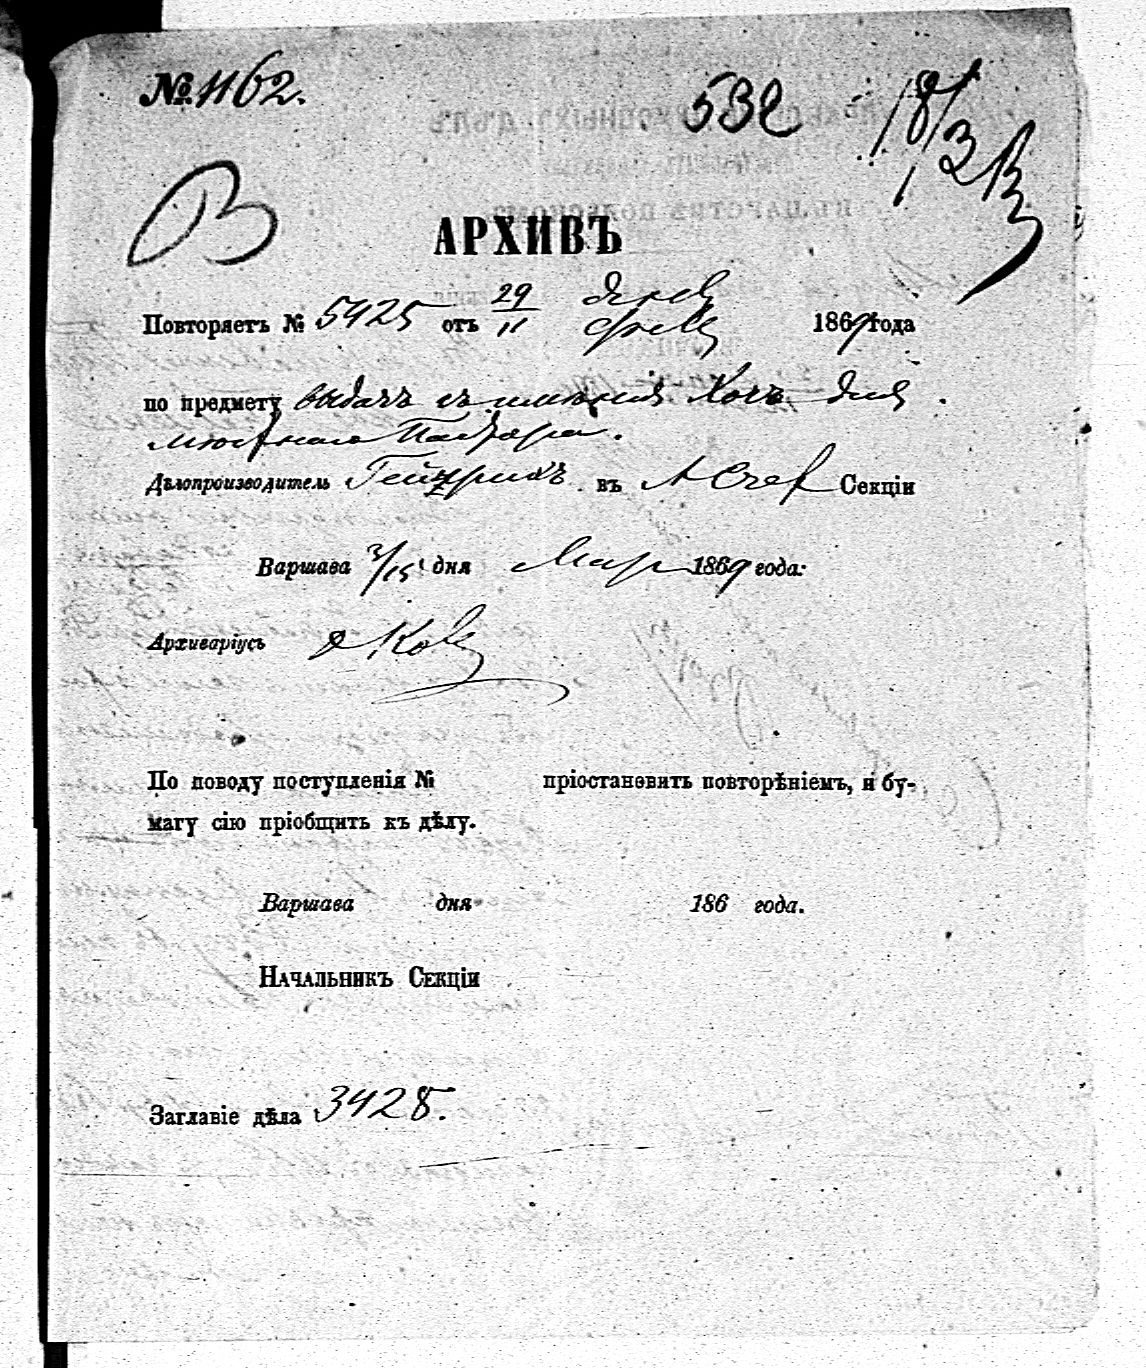 № 1162.
532
18/3
В
АРХИВЪ
Повторяетъ № 5425 отъ 29/11 1869 года
по предмету выдачъ съ имѣнія для
мѣстнаго Пастора.
Дѣлопроизводитель въ Секціи
Варшава 3/15 дня Мар 1869 года.
Архиваріусъ
По поводу поступленія № пріостановить повторѣніемъ, и бу-
магу сію пріобщить къ дѣлу.
Варшава дня 186 года.
Начальникъ Секціи
Заглавіе дѣла 3428.